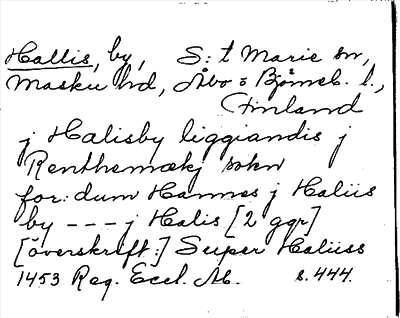 Hallis, by, S:t Marie sn,
Masku hd, Åbo o Björneb. l.,
Finland
j Halisby liggiandis j
Renthemækj sokn
for:dum Hannes j Haliis
by --- j Halis [2 ggr]
[överskrift:] Super Haliiss
1453 Reg. Eccl. Ab. s. 444.